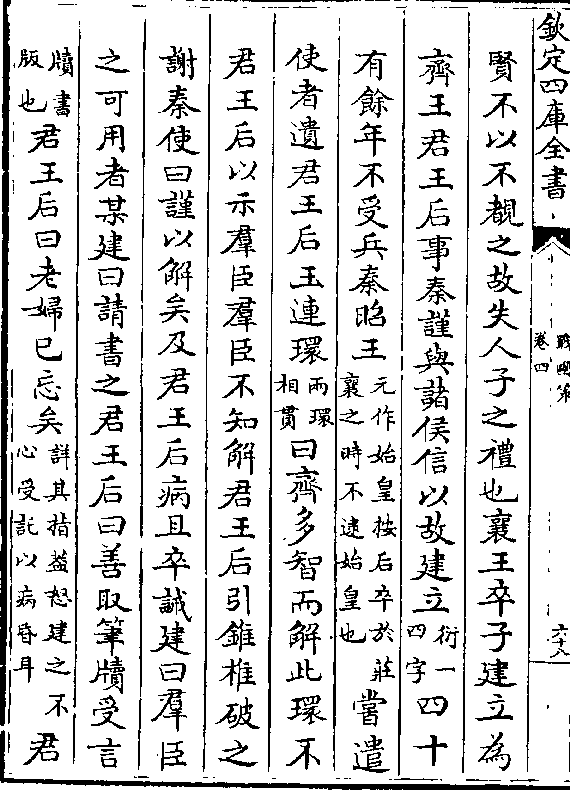 欽定四庫全書
戰國策
卷四
賢不以不覩之故失人子之禮也襄王卒子建立為
齊王君王后事秦謹與諸侯信以故建立衍一四字四十
有餘年不受兵秦昭王元作始皇按后卒於莊襄之時不逮始皇也嘗遣
使者遺君王后玉連環兩環相貫曰齊多智而解此環不
君王后以示羣臣羣臣不知解君王后引錐椎破之
謝秦使曰謹以解矣及君王后病且卒誡建曰羣臣
之可用者某建曰請書之君王后曰善取筆牘受言
牘書版也君王后曰老婦已忘矣詳其指蓋怒建之不心受託以病昏耳君